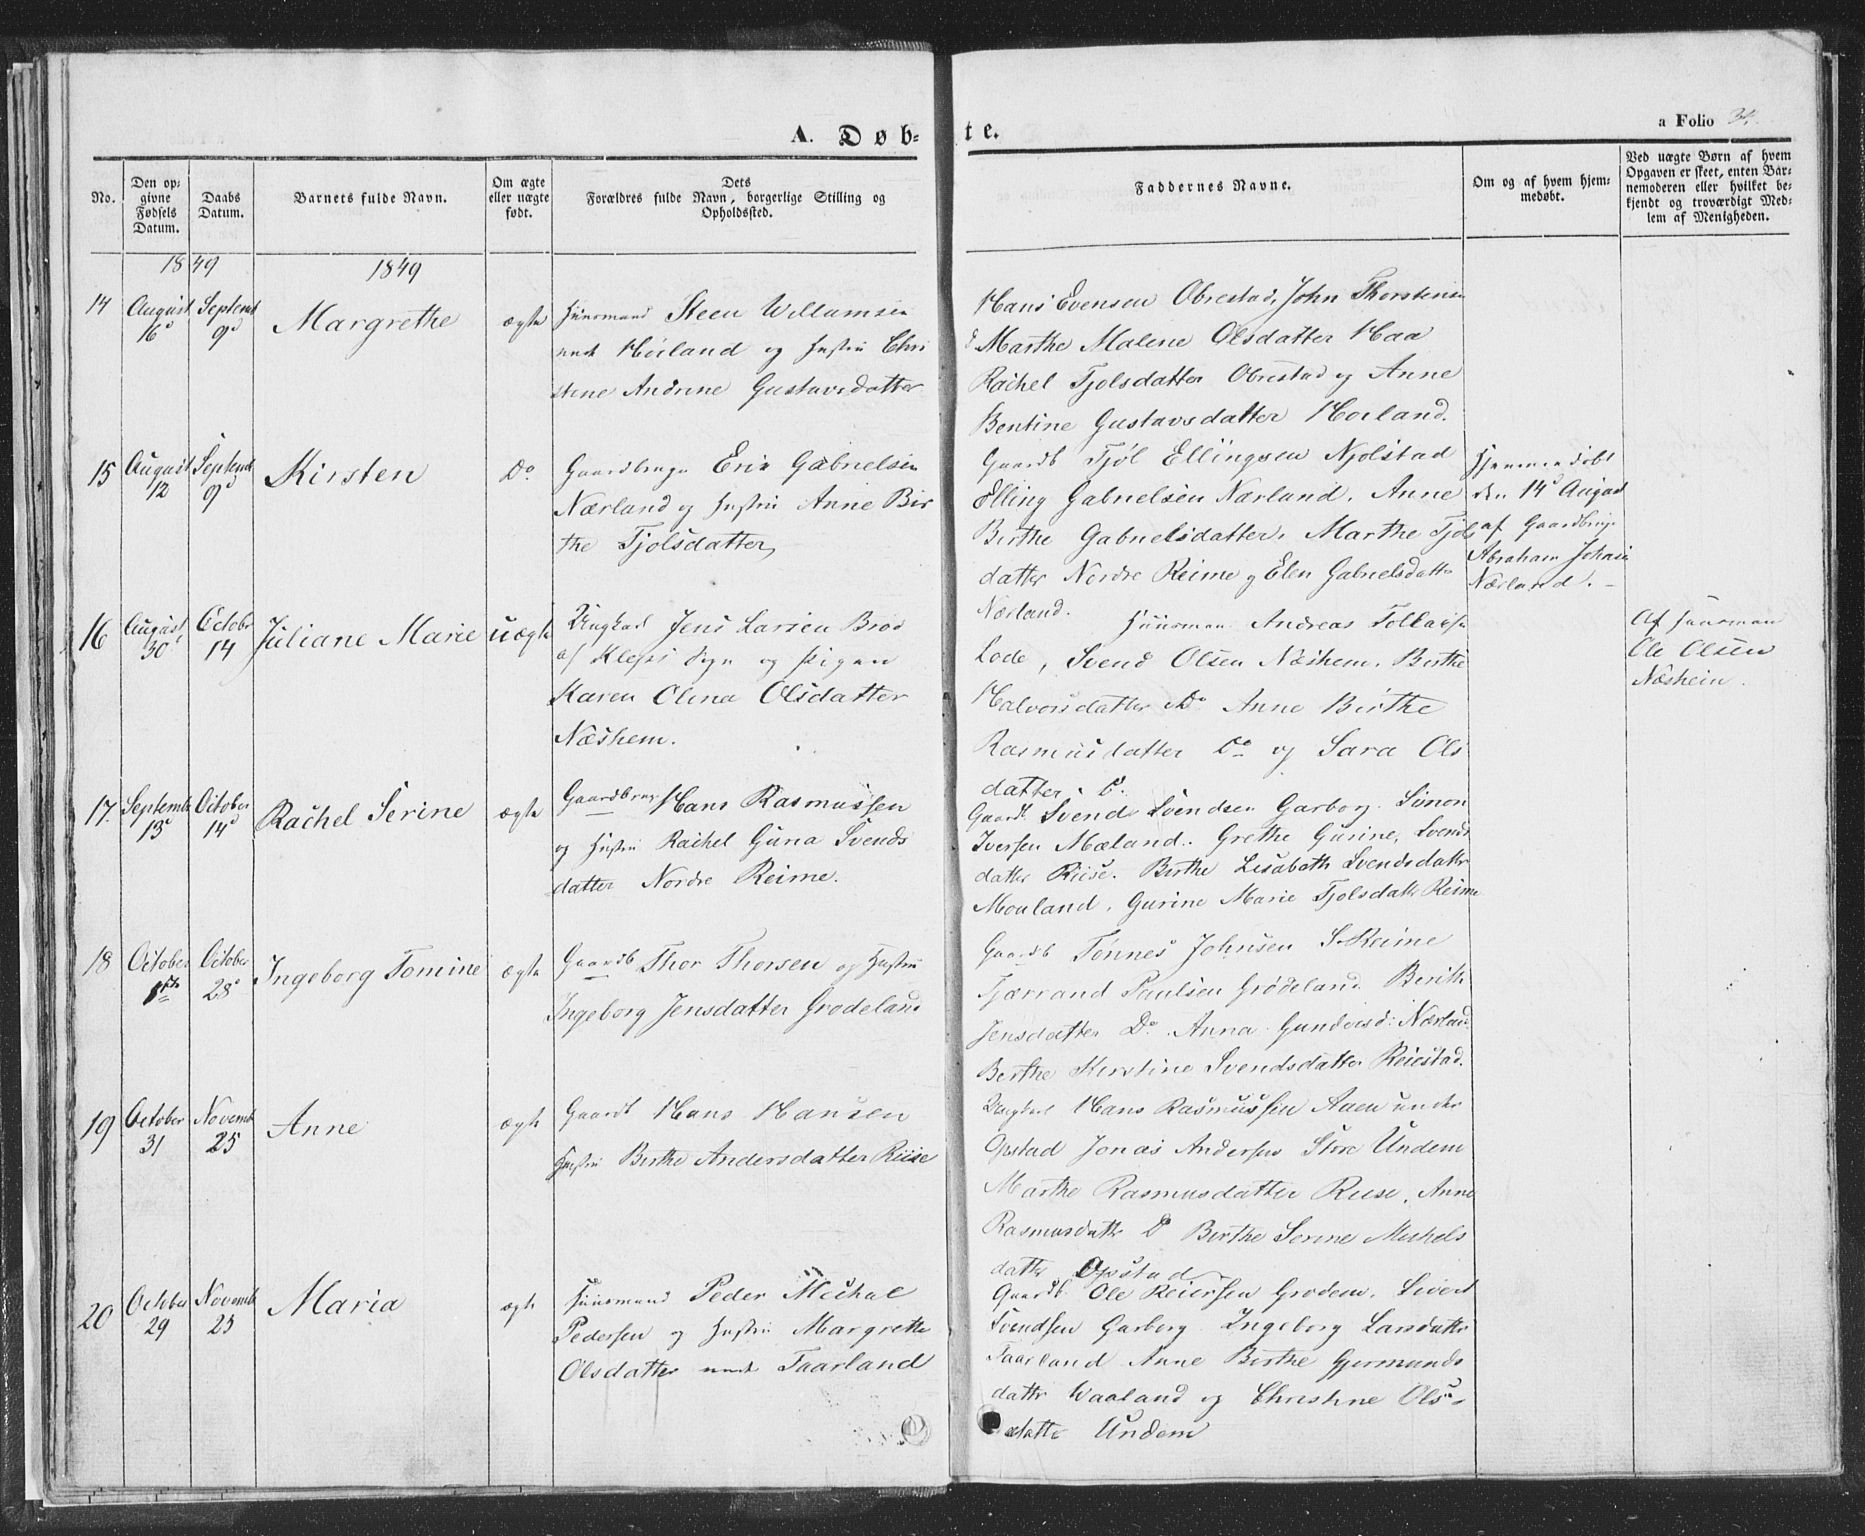 A. Døb-
te.
a Folio 34.
No.
Den op-
givne
Fødsels
Datum.
Daabs
Datum.
Barnets fulde Navn.
Om ægte
eller uægte
født.
Dets
Forældres fulde Navn, borgerlige Stilling og
Opholdssted.
Faddernes Navne.
Om og af hvem hjem-
medøbt.
Ved uægte Børn af hvem
Opgaven er skeet, enten Bar-
nemoderen eller hvilket be-
kjendt og troværdigt Med-
lem af Menigheden.
1849
1849
14
August
16d
Septemb
9d
Margrethe
ægte
Huusmand Steen Willumsen
und Høiland og Hustru Chri
stine Andrine Gustavsdatter
Hans Evensen Obrestad, John Thorstens
Marthe Malene Olsdatter Haa
Rachel Tjolsdatter Obrestad og Anne
Bentine Gustavsdatter Høiland.
15
August
12
Septemb
9d
Kirsten
Do
Gaardbruger Eric Gabrielsen
Nærland og Hustru Anne Bir
the Tjolsdatter
Gaardb Tjøl Ellingsen Njolstad
Elling Gabrielsen Nærland. Anne
Birthe Gabrielsdatter. Marthe Tjols
datter Nordre Reime og Elen Gabrielsdatter
Nærland.
Hjemmedøbt
den 14d August
af Gaardbruger
Abraham Johnsen
Nærland. -
16
August
30
October
14
Juliane Marie
uægte
Ungkarl Jens Larsen Broe
af Kleps Sogn og Pigen
Karen Olena Olsdatter
Næshem.
Huusman Andreas Tollaksen
Lode, Svend Olsen Næshem. Birthe
Halvorsdatter Do Anne Birthe
Rasmusdatter Do og Sara Ols
datter Do.
Af Huusman
Ole Olsen
Næshein.
17.
Septemb
13d
October
14d
Rachel Serine
ægte
Gaardbruger Hans Rasmussen
og Hustru Rachel Guna Svends
datter Nordre Reime.
Gaardb Svend Svendsen Garborg. Simon
Iversen Mæland. Grethe Gurine, Svends
datter Riise. Birthe Lisabeth Svendsdatter
Mouland. Gurine Marie Tjolsdattr Reime
18
October
1ste
October
28d
Ingeborg Tomine
ægte
Gaardb Thor Thorsen og Hustru
Ingeborg Jensdatter Grødeland
Gaardb Tønnes Johnsen S. Reime
Tjærrand Paulsen Grødeland. Berith
Jensdatter Do. Anna Gundersd: Nærland
Berthe Kirstine Svendsdatter Reiestad.
19
October
31
Novemb
25
Anne
ægte
Gaardb Hans Hansen
Hustru Birthe Andersdatter Riise
Ungkarl Hans Rasmussen Aaen under
Opstad Jonas Andersen Store Undem
Marthe Rasmusdatter Riise, Anne
Rasmusdattr Do Birthe Serine Michels
datter Opstad
20
October
29
Novemb
25
Maria
ægte
Huusmand Peder Michal
Pedersen og Hustru Margrethe
Olsdatter und Taarland
Gaardb Ole Reiersen Grødem. Sivert
Svendsen Garborg Ingeborg Larsdattr
Taarland Anne Birthe Gjermunds
dattr Waaland og Christine Ols-
datte Undem